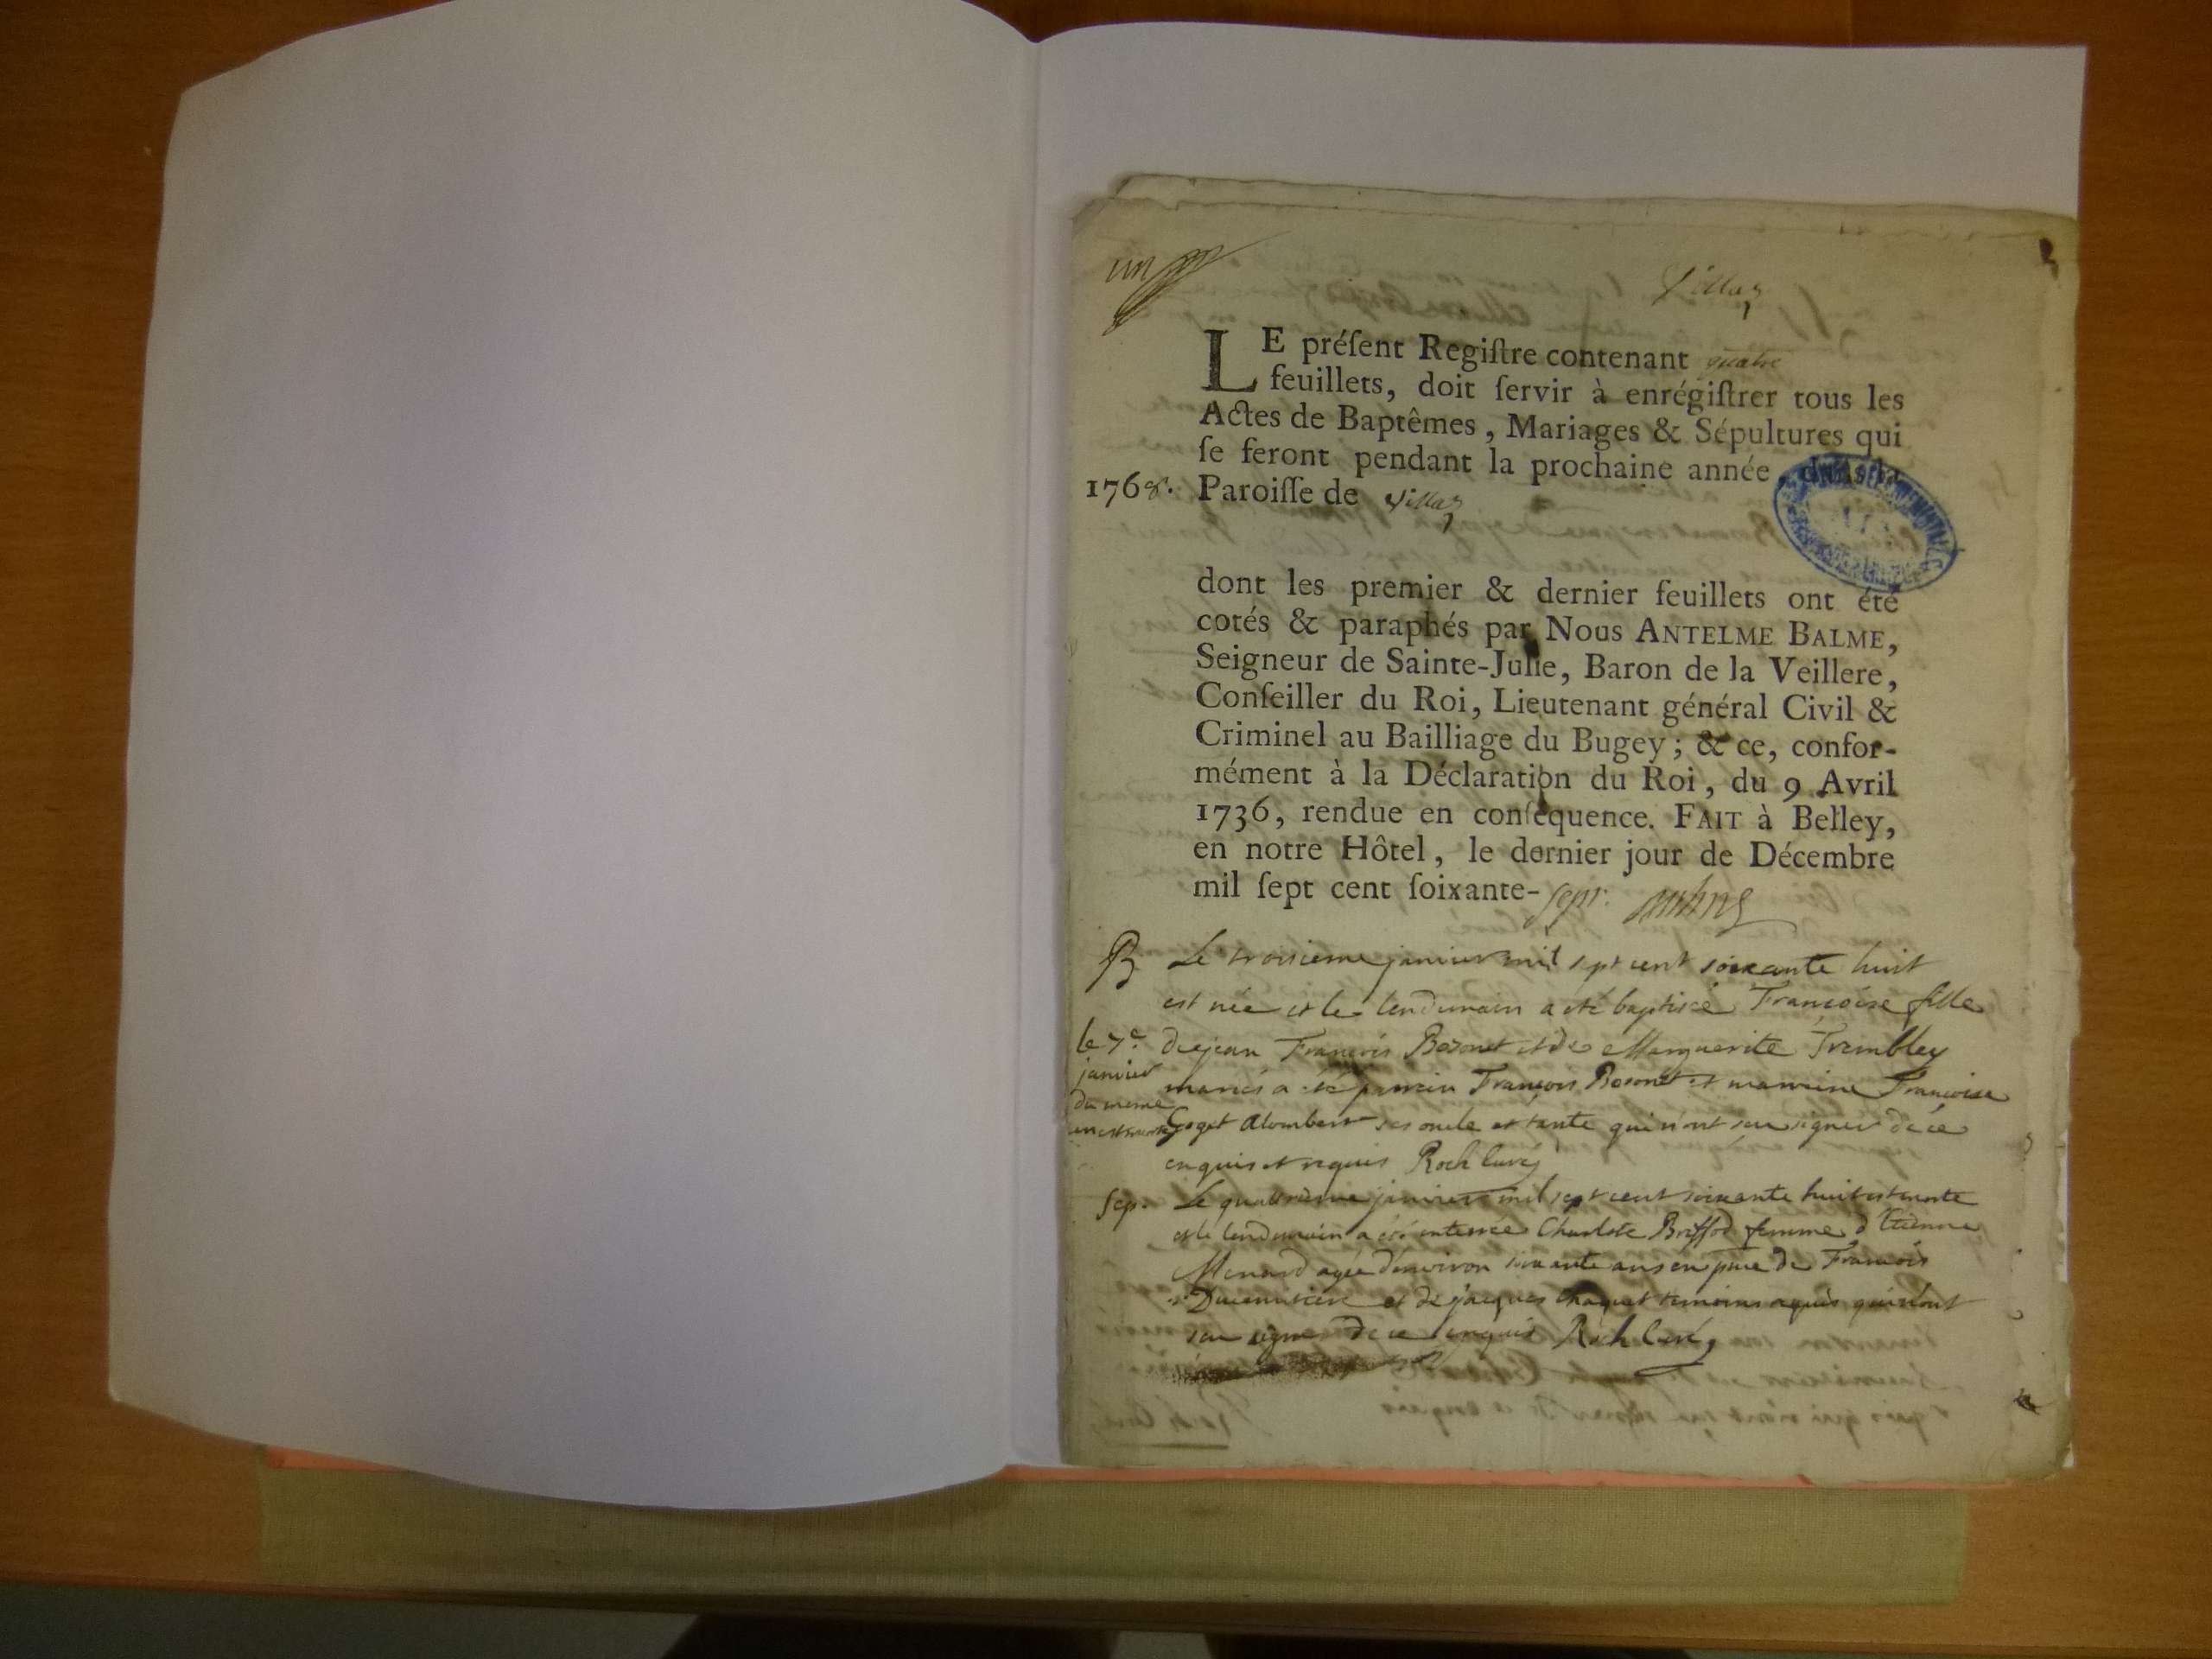 un
Villaz
LE préſent Regiſtre contenant quatre
feuillets, doit ſervir à enrégiſtrer tous les
Actes de Baptêmes, Mariages & Sépultures qui
ſe feront pendant la prochaine année, dans la
1768. Paroiſſe de Villaz
dont les premier & dernier feuillets ont été
cotés & paraphés par Nous ANTELME BALME,
Seigneur de Sainte-Julie, Baron de la Veillere,
Conſeiller du Roi, Lieutenant général Civil &
Criminel au Bailliage du Bugey; & ce, confor-
mément à la Déclaration du Roi, du 9 Avril
1736, rendue en conſéquence. FAIT à Belley,
en notre Hôtel, le dernier jour de Décembre
mil ſept cent ſoixante-sept.
B Le troisieme janvier mil sept cent soixante huit
est née et le lendemain a été baptisée Françoise fille
de jean François Bozonet et de Marguerite Trembley
mariés a été parrein François Bozonet et marreine Françoise
Goget Alombert ses oncle et tante qui n'ont scu signer de ce
enquis et requis Roch Curé
le 7e
janvier
du meme
en est morte
Sep. Le quatrieme janvier mil sept cent soixante huit est morte
et le lendemain a été enterrée Charlote Briffod femme d'Etienne
Menard agée d'environ soixante ans en pnce de François
Ducemitiere et de jacques Chaquet temoins requis qui n'ont
scu signer de ce enquis Roch Curé